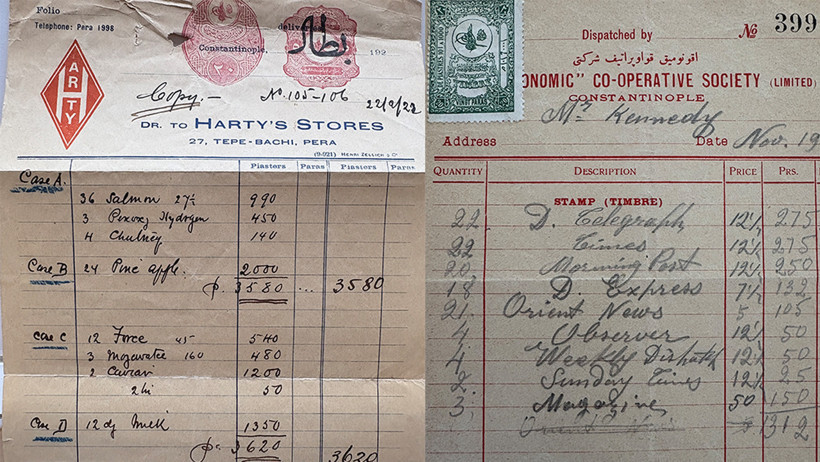 Folio
Telephone: Pera 1998
deliver
Constantinople,
بطال
192
HARTY
Copy.—
No. 105-106
22/2/22
DR. TO HARTY'S STORES
27, TEPE-BACHI, PERA
(9.021) HENRI ZELLICH & Co
Piasters Paras Piasters Paras
Case A.
36 Salmon 27½ 990
3 Peroxy Hydrgen 450
4 Chutney 140
Case B 24 Pine apple. 2000
p. 3580 ... 3580
Case C 12 Force 45 540
3 Mazawatee 160 480
2 Caviari 1200
50
Case D 12 dz Milk 1350
3620 3620
Dispatched by
No 399
اقونوميق قوأوپراتيف شركتى
ONOMIC" CO-OPERATIVE SOCIETY (LIMITED)
CONSTANTINOPLE
Mrs Kennedy
Address Date Nov. 19
QUANTITY DESCRIPTION PRICE PRS.
STAMP (TIMBRE)
22 D. Telegraph 12½ 275
22 Times 12½ 275
20 Morning Post 12½ 250
18 D. Express 7½ 132
21. Orient News 5 105
4 Observer 12½ 50
4 Weekly Dispatch 12½ 50
2 Sunday Times 12½ 25
3 Magazines 50 150
1312